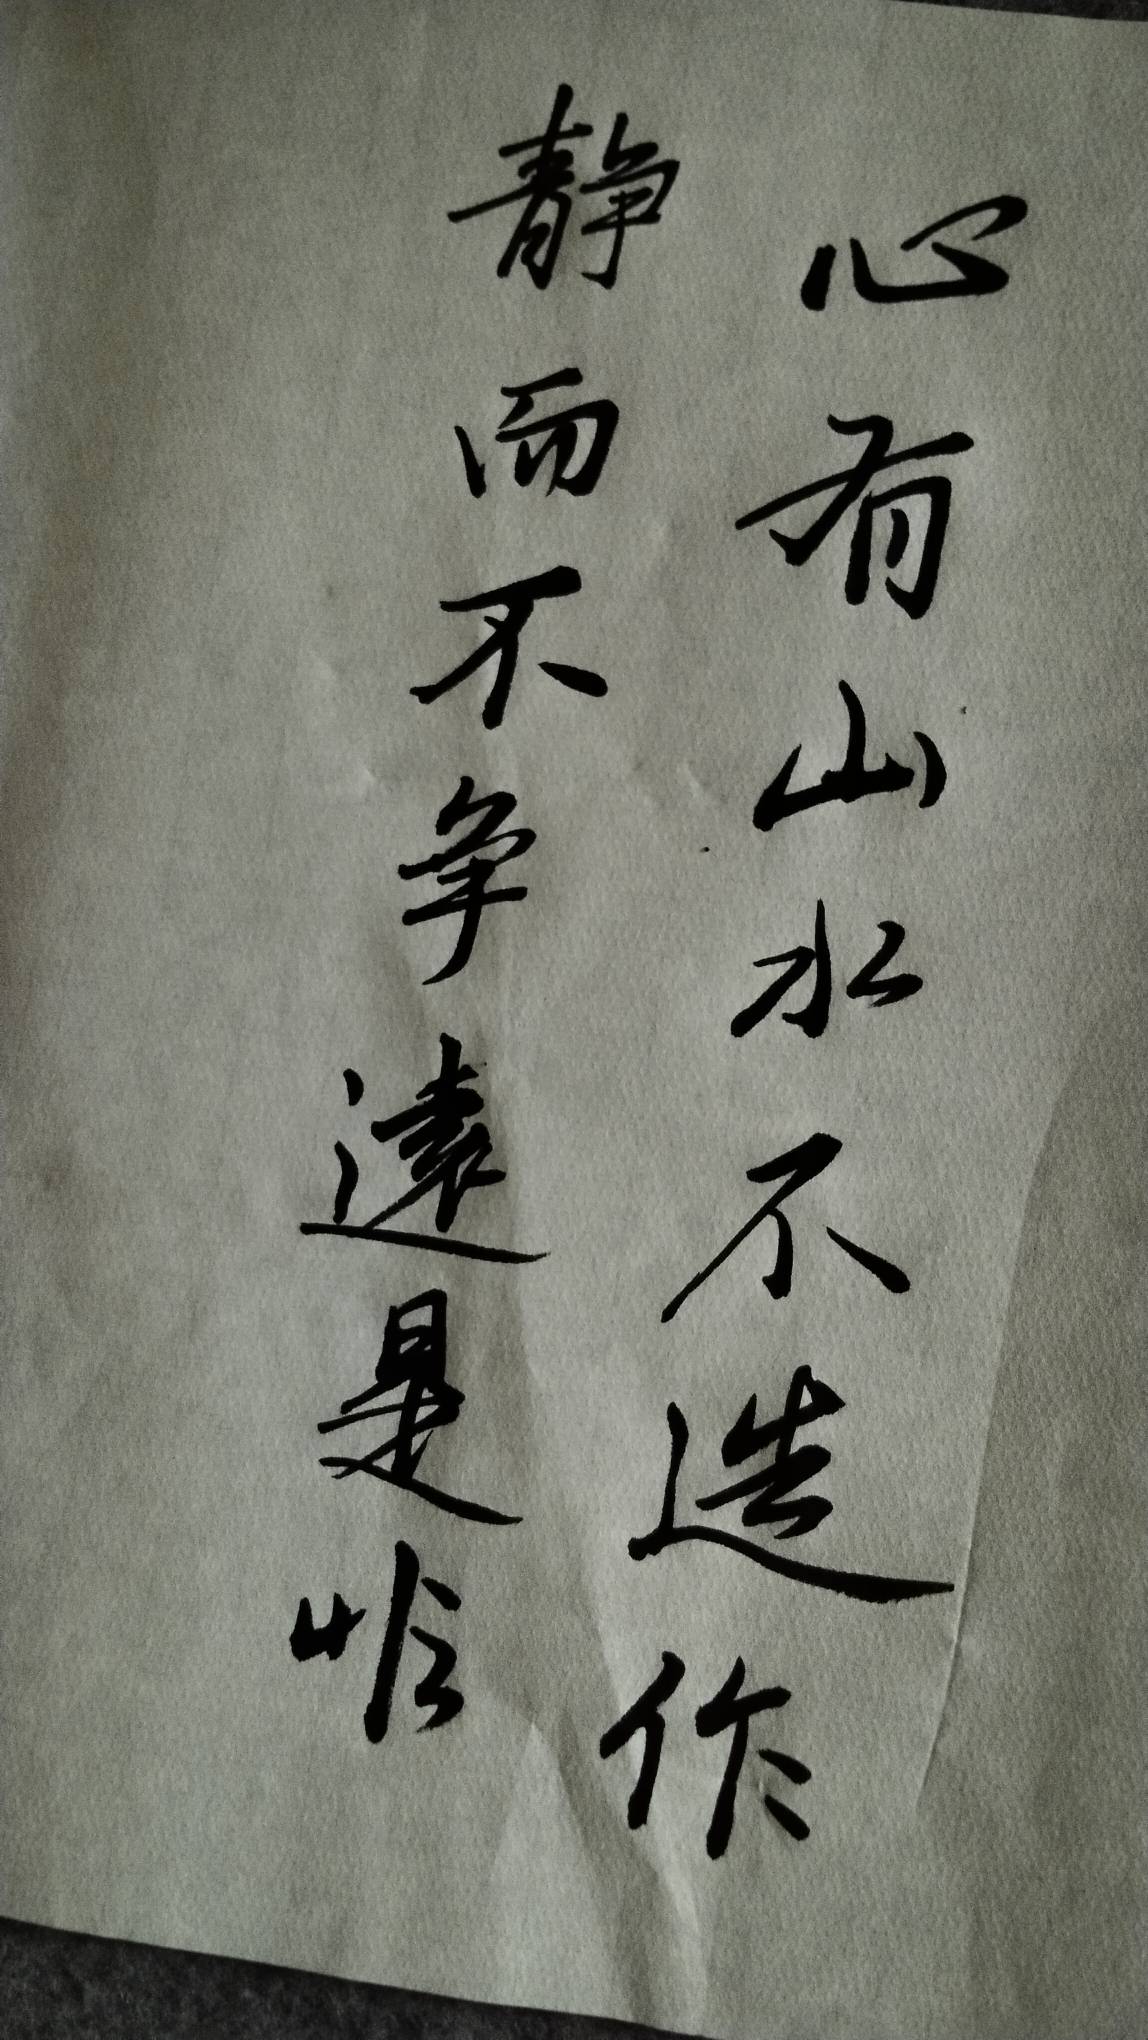 心有山水不造作
静而不争遠是非